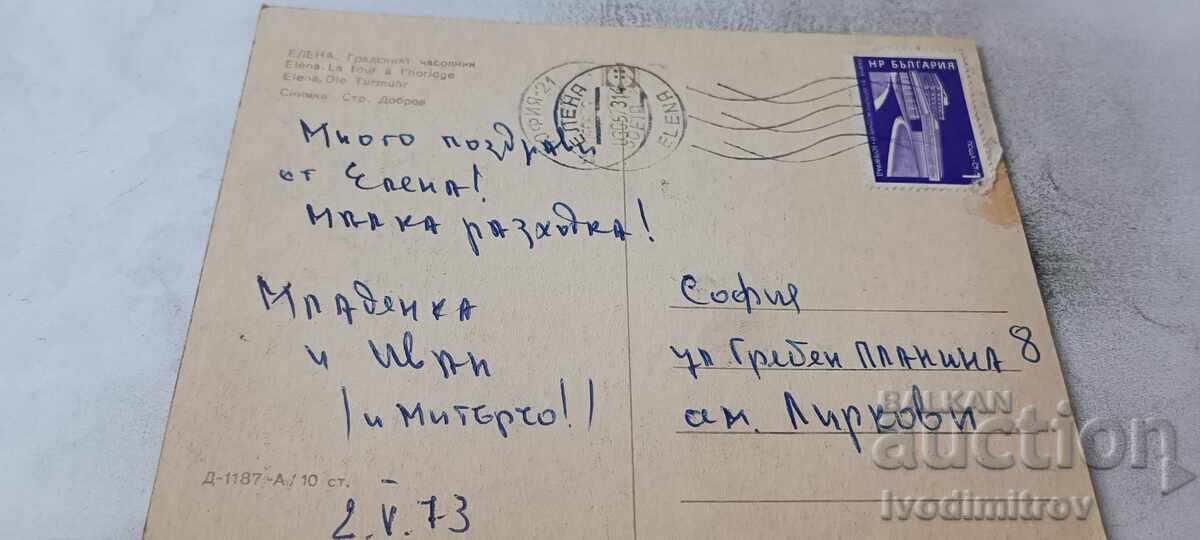 ЕЛЕНА. Градският часовник
Elena. La tour à l'horloge
Elena. Die Turmuhr
Снимка Стр. Добров
Много поздрави
от Елена!
Малка разходка!
Младенка
и Иван
/и Митерчо!/
2.V.73
Д-1187-А/10 ст.
СОФИЯ-21
ЕЛЕНА
ELENA
НР БЪЛГАРИЯ
София
ул Гребен планина 8
ам. Лиркови
BALKAN
auction
Ivodimitrov